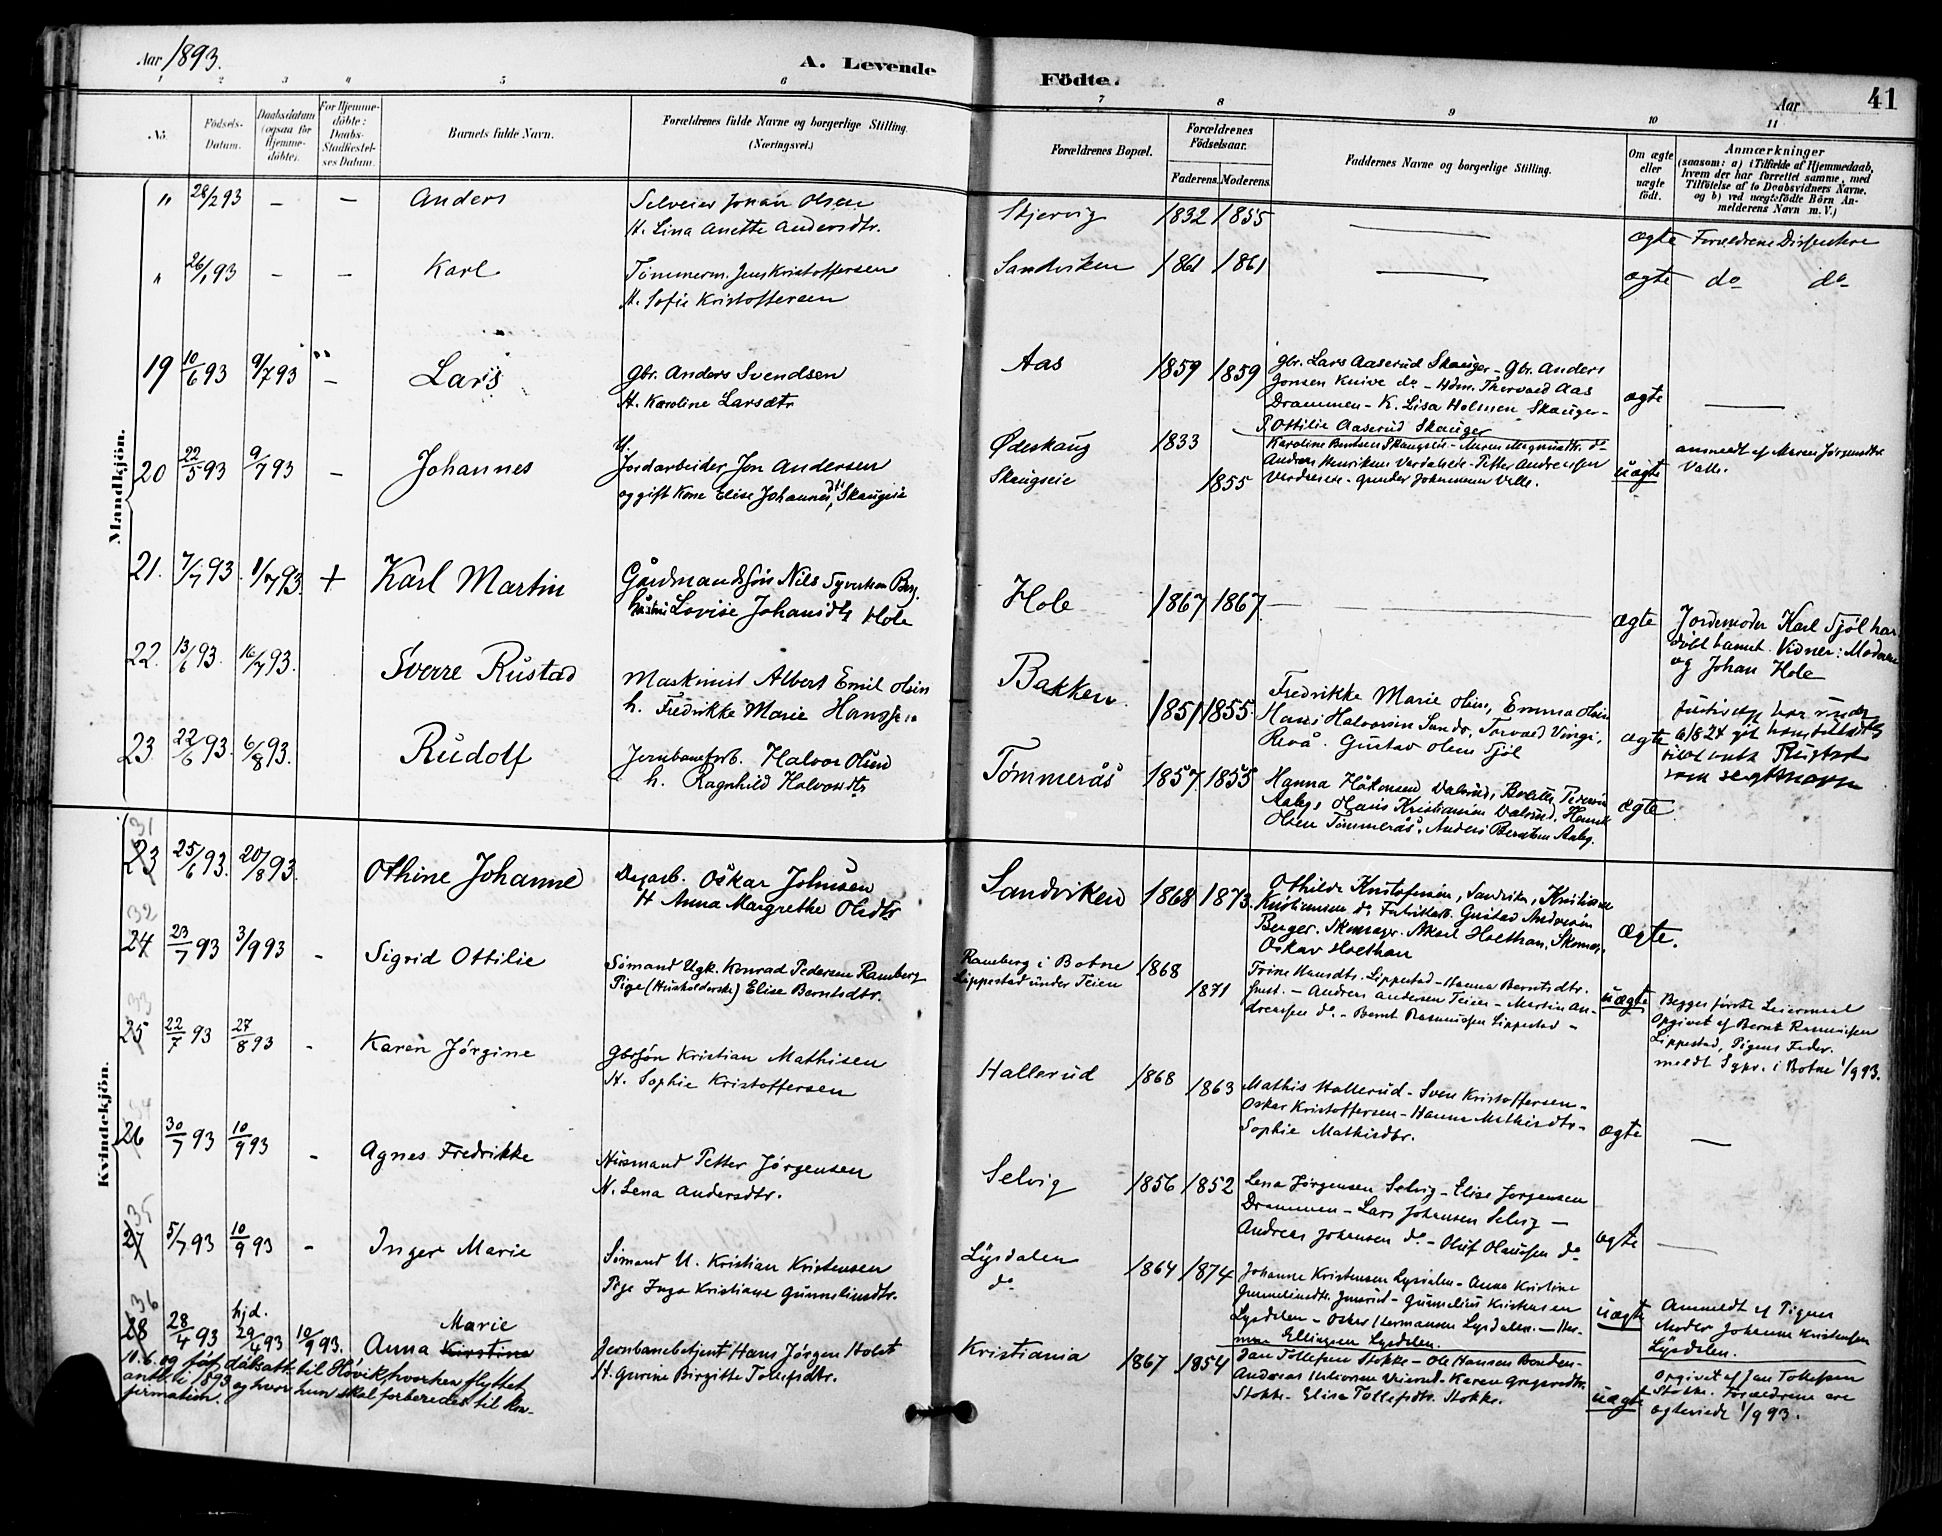 Aar 1893.
A. Levende
Födte.
Aar
41
1 2 3 4 5 6 7 8 9 10 11
No.
Födsels-
Datum.
Daabsdatum
(ogsaa for
Hjemme-
döbte).
For Hjemme-
döbte:
Daabs-
Stadfæstel-
ses Datum.
Barnets fulde Navn.
Forældrenes fulde Navne og borgerlige Stilling.
(Næringsvei.)
Forældrenes Bopæl.
Forældrenes
Födselsaar.
Faderens. Moderens.
Faddernes Navne og borgerlige Stilling.
Om ægte
eller
uægte
födt.
Anmærkninger
(saasom: a) i Tilfælde af Hjemmedaab,
hvem der har forrettet samme, med
Tilföielse af to Daabsvidners Navne.
og b) ved uægtefödte Börn An-
melderens Navn m. V.)
Mandkjön.
" 28/2 93 – – Anders
Selveier Johan Olsen
H. Lina Anette Andersdtr.
Skjervig 1832 1855 —— ægte Forældrene Dissentere
" 26/1 93 – – Karl
Tömmerm. Jens Kristoffersen
H. Sofie Kristoffersen
Sandviken 1861 1861 —— ægte do do
19 10/6 93 9/7 93 – Lars
Gbr. Anders Svendsen
H. Karoline Larsdtr
Aas 1859 1859
Gbr. Lars Aaserud Skauger – Gbr. Anders
Jonsen Knive do – Hdm. Thorvald Aas
Drammen – K. Lisa Holmen Skauger –
P. Ottilie Aaserud Skauger
ægte ——
20 22/5 93 9/7 93 – Johannes
Jordarbeider Jon Andersen
og gift Kone Elise Johannesdtr, Skaugeie
Ødeskaug
Skaugeie
1833
1855
Karoline Bentsen Skaugeie –
Andreas Henriksen – Petter Andreassen
uægte
anmeldt af Maren Jörgensdtr
Valle.
21. 7/7 93 8/7 93. + Karl Martin
Gårdmandssön Nils Syvertsen Berg
hustru Lovise Johansdtr Hole
Hole 1867 1867. ——
ægte
Jordemoder Karl Sjöl har
döbt barnet. Vidner: Moderen
og Johan Hole
22. 13/6 93. 16/7 93. Sverre Rustad
Maskinist Albert Emil Olsen
h. Fredrikke Marie Hanssen
Bakken. 1851 1855.
Fredrikke Marie Olsen, Emma Olsen
Hans Halvorsen Sando, Torvald Vinge,
Revå. Gustav Olsen Sjöl
ægte
6/8 24
Rustad
som slegtsnavn
23. 22/6 93. 6/8 93. Rudolf
Jernbanearb. Halvor Olsen
h. Ragnhild Halvorsdtr
Tömmerås 1857 1855
Hanna Håkonsen Valsrud,
Aaby, Hans Kristiansen Valsrud, Henrik
Olsen Tömmerås, Anders Berntsen Aaby.
ægte.
Kvindekjön.
31
23 25/6 93. 20/8 93. Othine Johanne
Dagarb. Oskar Johnsen
H Anna Margrethe Olsdtr
Sandviken 1868 1873.
Othilde Kristofersen, Sandviken, Kristiane
Kristiansen do, Gustav Andersen
Berger. Skomager Mkarl Hoelthan, Skomag.
Oskar Hoelthan
ægte.
32
24 23/7 93 3/9 93 – Sigrid Ottilie
Sömand Ugk. Konrad Pedersen Ramberg
Pige (Husholderske) Elise Berntsdtr.
Ramberg i Botne
Lippestad under Teien
1868
1871
Trine Hansdtr. Lippestad – Hanna Berntsdtr.
Andreas Andersen Teien – Martin An-
dreassen do – Bernt Rasmussen Lippestad –
uægte
Begges förste Leiermaal
Opgivet af Bernt Rasmussen
Lippestad, Pigens Fader.
meldt Sgpr. i Botne 1/9 93.
33
25 22/7 93 27/8 93 – Karen Jörgine
Gbrsön Kristian Mathisen
H. Sophie Kristoffersen
Hallerud 1868 1863
Mathis Hallerud – Sven Kristoffersen –
Oskar Kristoffersen – Hanna Mathisdtr –
Sophie Mathisdtr.
ægte —
26 30/7 93 10/9 93 – Agnes Fredrikke
Husmand Petter Jörgensen
H. Lena Andersdtr.
Selvig 1856 1852
Lena Jörgensen Selvig – Elise Jorgensen
Drammen – Lars Johansen Selvig –
Andreas Johansen do – Oluf Olaussen do
ægte ——
35
27 5/7 93 10/9 93 – Inger Marie
Sömand U. Kristian Kristensen
Pige Inga Kristiane Gunneliusdtr.
Lysdalen
do
1864 1874
Johanne Kristensen Lysdalen – Anna Kristine
Gunneliusdtr. – Gunnelius Kristensen
Lysdalen – Oskar Hermansen Lysdalen. – Her-
man Ellingsen Lysdalen.
uægte
Anmeldt af Pigens
Moder Johanne Kristensen
Lysdalen.
36
28 28/4 93 hjd. 29/4 93 10/9 93. Anna Kirstine Marie
Jernbanebetjent Hans Jörgen Holst
H. Gurine Birgitte Tollefsdtr.
Kristiania 1867 1854
Jan Tollefsen Stokke – Ole Hansen Bonden –
Andreas Halvorsen – Karen Gregersdtr.
Stokke – Elise Tollefsdtr. Stokke.
uægte
opgivet af Jan Tollefsen
Stokke. Forældrene ere
ægteviede 1/9 93.
dåbsatt. til Hövik hvorhen flyttet
1893 og hvor hun skal forberedes til Kon-
firmation.